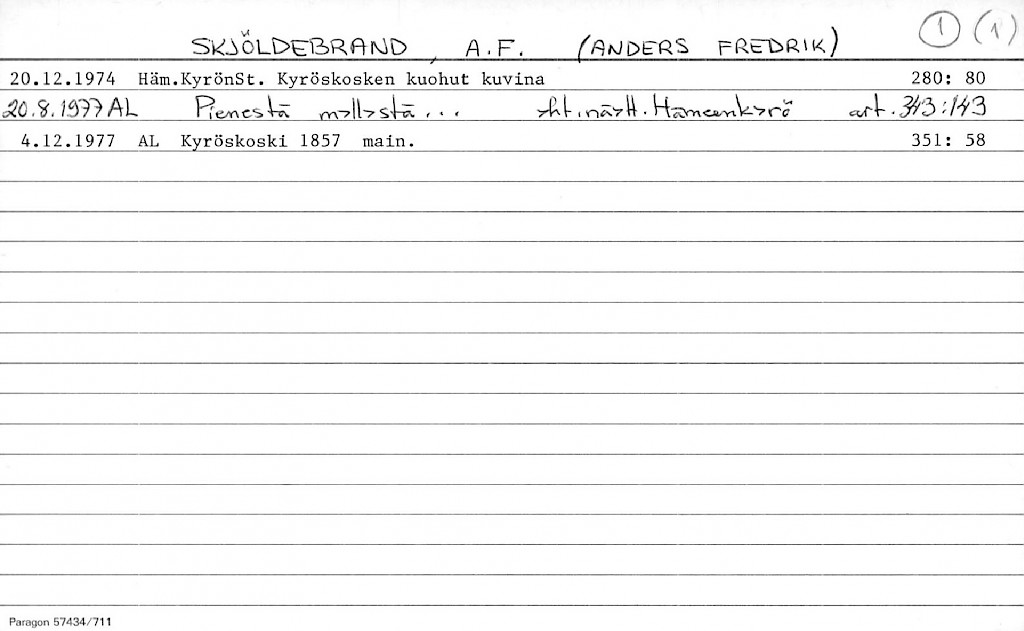 SKJÖLDEBRAND, A.F. (ANDERS FREDRIK) 1 (1)
20.12.1974 Häm.KyrönSt. Kyröskosken kuohut kuvina 280: 80
20.8.1977 AL Pienestä mallasta... Hämeenkyrö art. 343:143
4.12.1977 AL Kyröskoski 1857 main. 351: 58
Paragon 57434/711